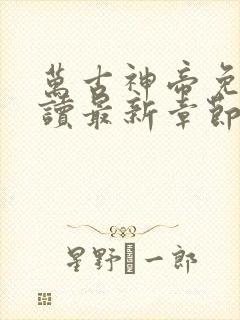 萬古神帝免
讀最新章節
星野 一郎